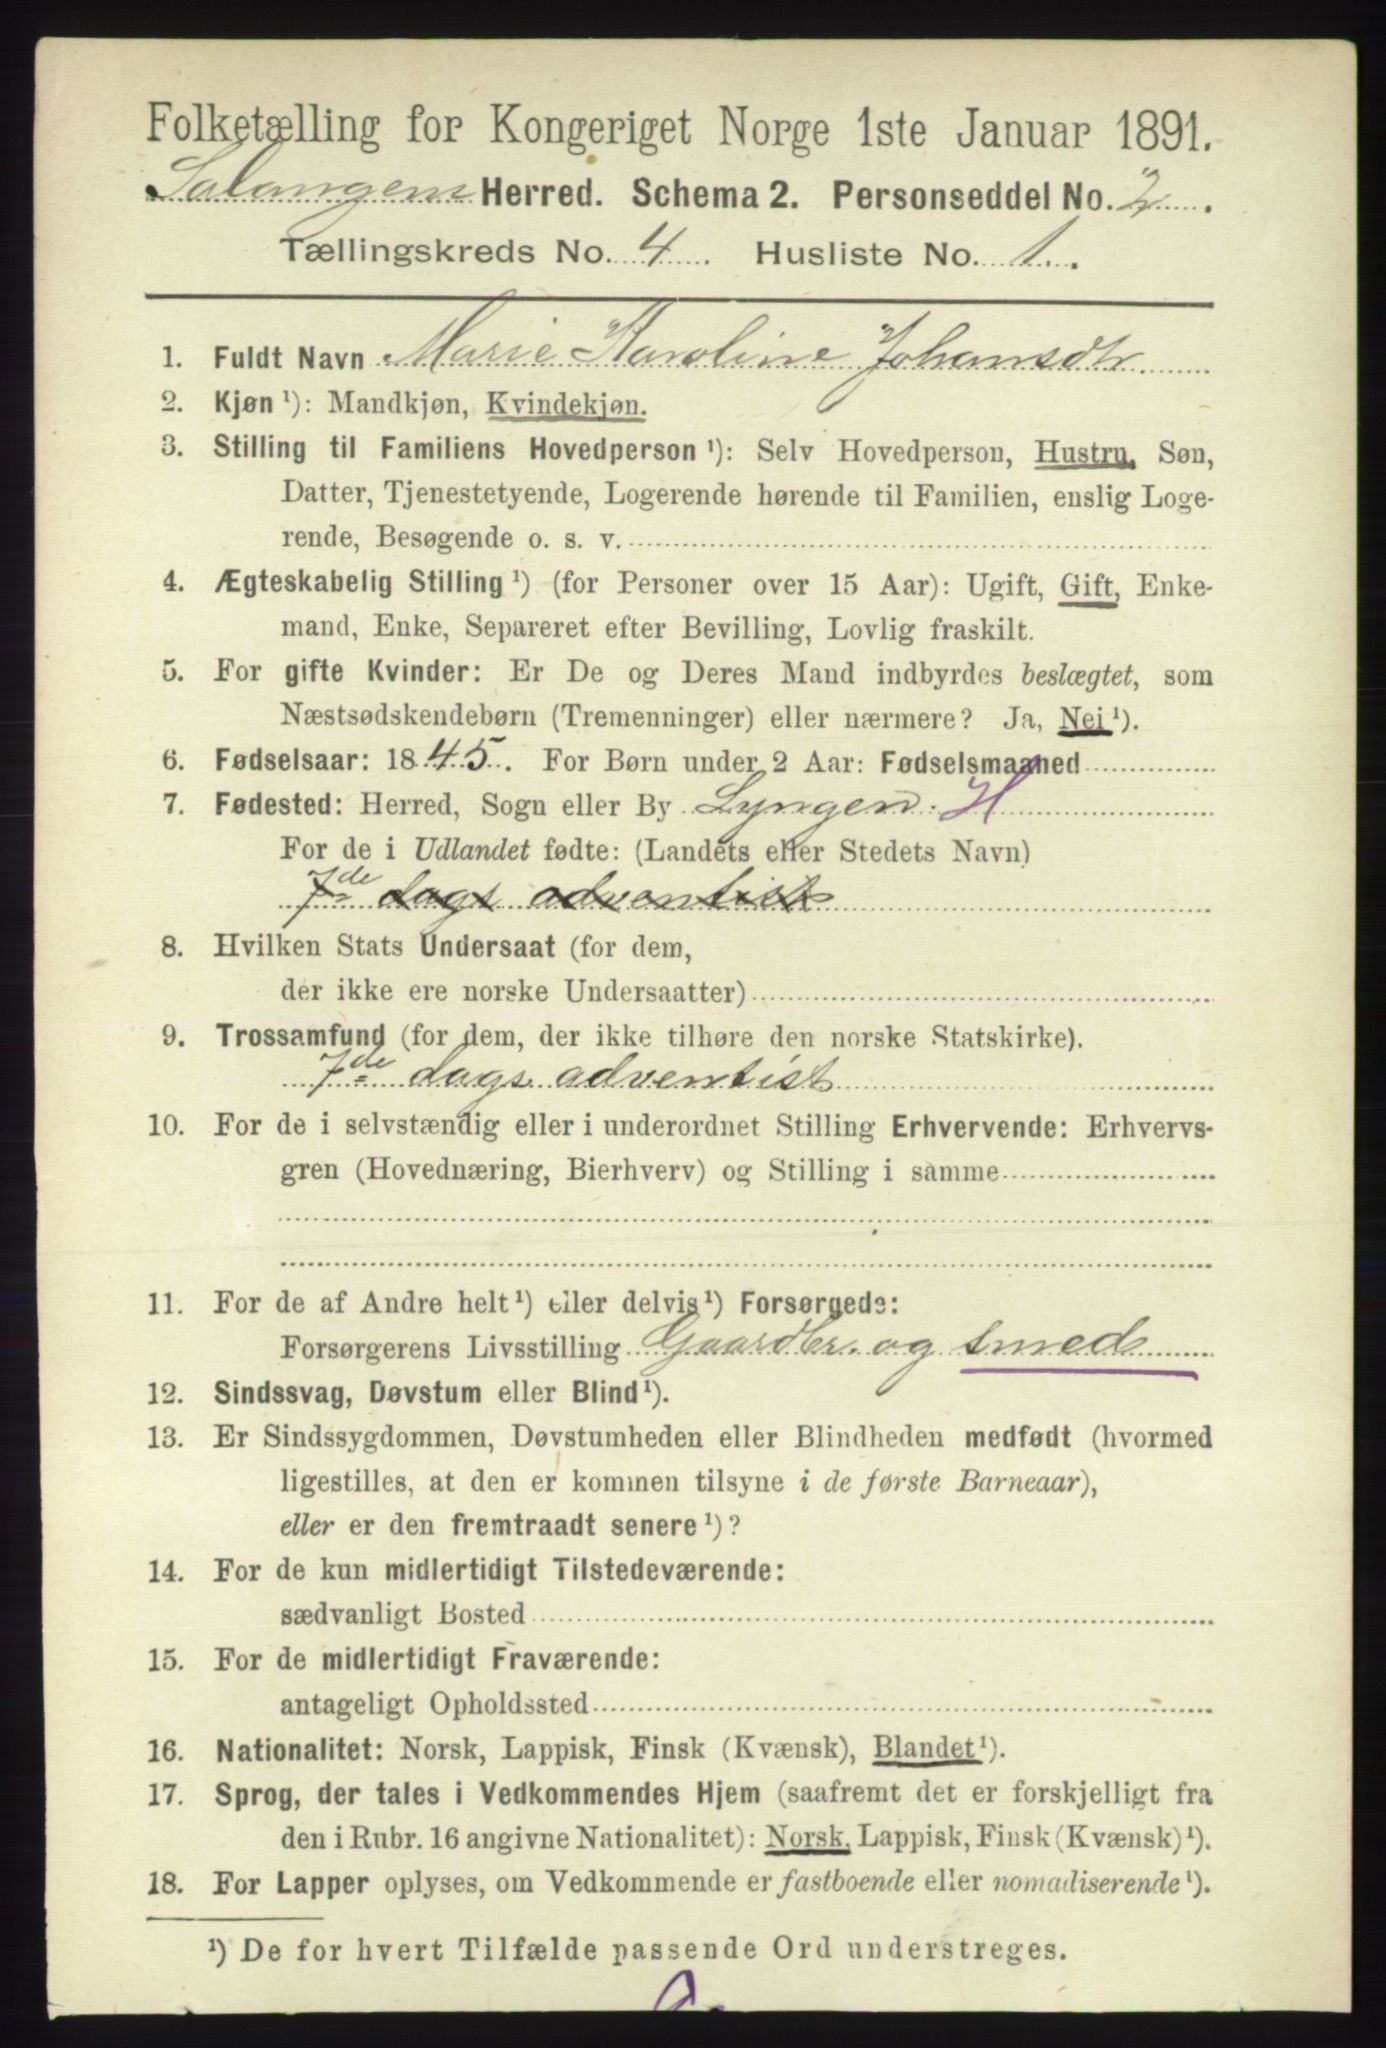 Folketælling for Kongeriget Norge 1ste Januar 1891.
Salangens Herred. Schema 2. Personseddel No. 2
Tællingskreds No. 4 Husliste No. 1
1. Fuldt Navn Marie Karoline Johansdtr
2. Kjøn ¹): Mandkjøn, Kvindekjøn.
3. Stilling til Familiens Hovedperson ¹): Selv Hovedperson, Hustru, Søn,
Datter, Tjenestetyende, Logerende hørende til Familien, enslig Loge-
rende, Besøgende o. s. v.
4. Ægteskabelig Stilling ¹) (for Personer over 15 Aar): Ugift, Gift, Enke-
mand, Enke, Separeret efter Bevilling, Lovlig fraskilt.
5. For gifte Kvinder: Er De og Deres Mand indbyrdes beslægtet, som
Næstsødskendebørn (Tremenninger) eller nærmere? Ja, Nei ¹).
6. Fødselsaar: 1845. For Børn under 2 Aar: Fødselsmaaned
7. Fødested: Herred, Sogn eller By Lyngen. H
For de i Udlandet fødte: (Landets eller Stedets Navn)
7de dags adventist
8. Hvilken Stats Undersaat (for dem,
der ikke ere norske Undersaatter)
9. Trossamfund (for dem, der ikke tilhøre den norske Statskirke).
7de dags adventist
10. For de i selvstændig eller i underordnet Stilling Erhvervende: Erhvervs-
gren (Hovednæring, Bierhverv) og Stilling i samme
11. For de af Andre helt ¹) eller delvis ¹) Forsørgede:
Forsørgerens Livsstilling Gaardbr. og smed
12. Sindssvag, Døvstum eller Blind ¹).
13. Er Sindssygdommen, Døvstumheden eller Blindheden medfødt (hvormed
ligestilles, at den er kommen tilsyne i de første Barneaar),
eller er den fremtraadt senere ¹)?
14. For de kun midlertidigt Tilstedeværende:
sædvanligt Bosted
15. For de midlertidigt Fraværende:
antageligt Opholdssted
16. Nationalitet: Norsk, Lappisk, Finsk (Kvænsk), Blandet ¹).
17. Sprog, der tales i Vedkommendes Hjem (saafremt det er forskjelligt fra
den i Rubr. 16 angivne Nationalitet): Norsk, Lappisk, Finsk (Kvænsk) ¹).
18. For Lapper oplyses, om Vedkommende er fastboende eller nomadiserende ¹).
¹) De for hvert Tilfælde passende Ord understreges.